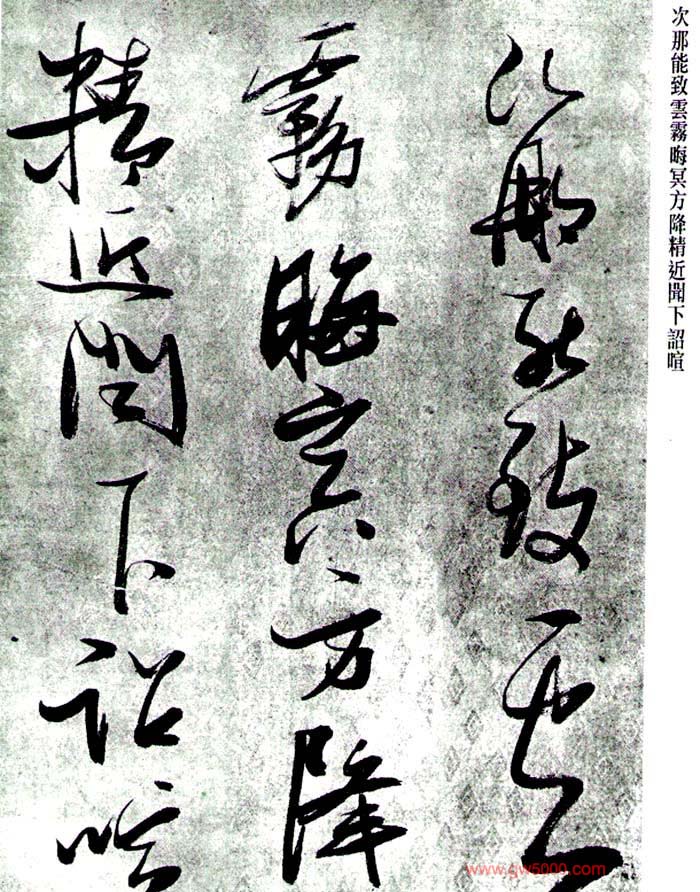 次那能致雲霧晦冥方降精近聞下詔喧
次那能致雲
霧晦冥方降
精近聞下詔喧
www.gw5000.com